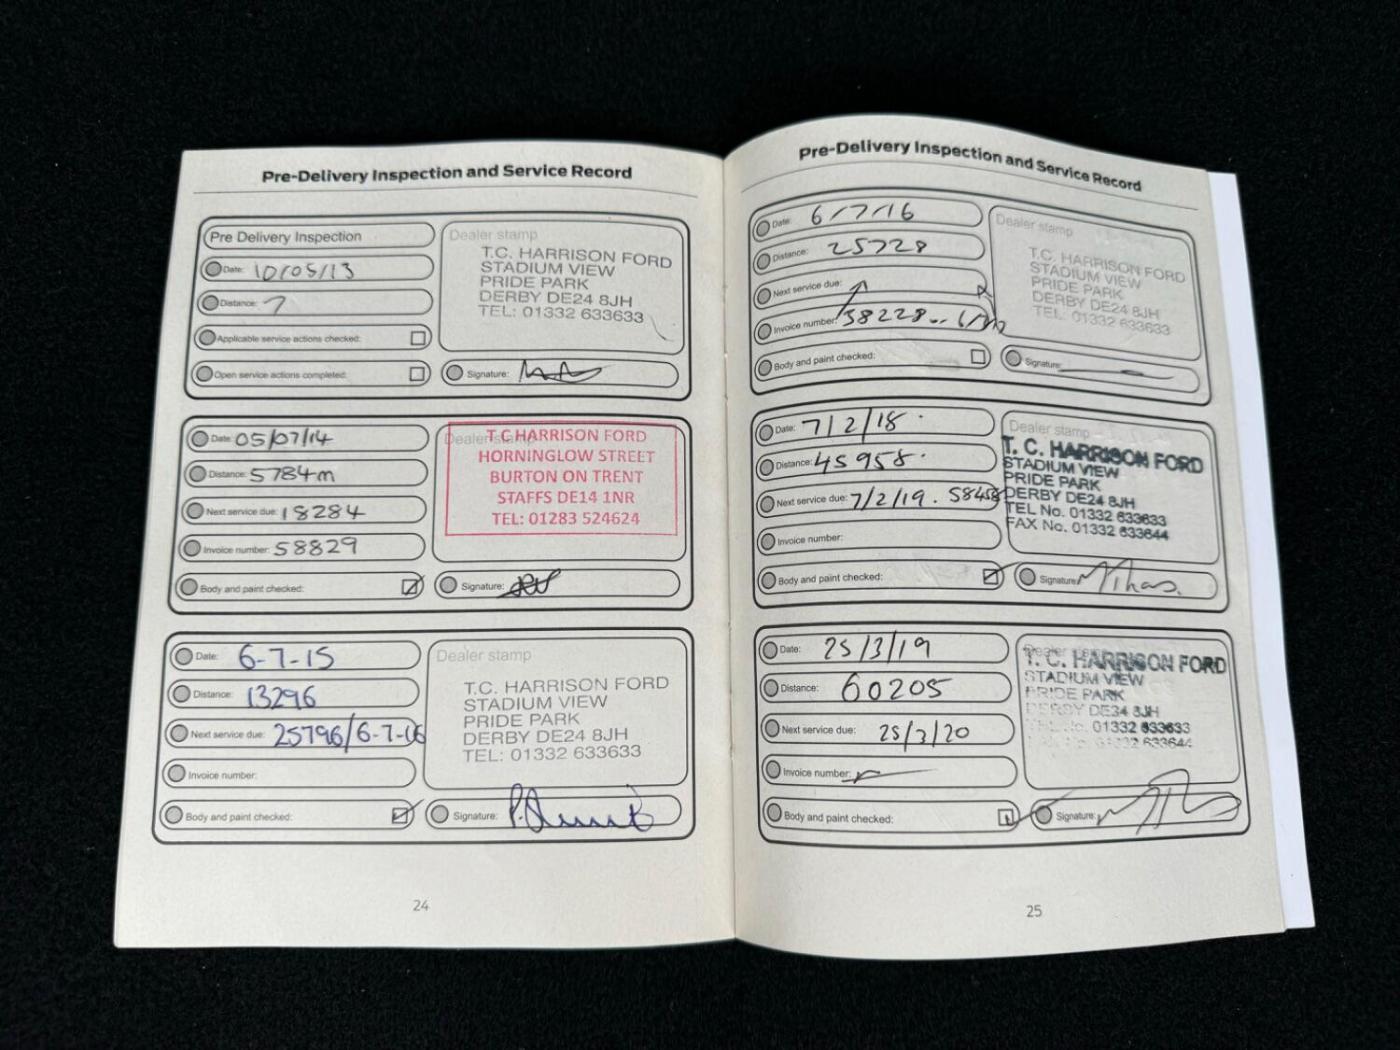 Pre-Delivery Inspection and Service Record
Pre Delivery Inspection
Date: 10/05/13
Distance: 7
Applicable service actions checked:
Open service actions completed:
Dealer stamp
T.C. HARRISON FORD
STADIUM VIEW
PRIDE PARK
DERBY DE24 8JH
TEL: 01332 633633
Signature:
Date: 05/07/14
Distance: 5784m
Next service due: 18284
Invoice number: 58829
Body and paint checked:
Dealer stamp
T.C HARRISON FORD
HORNINGLOW STREET
BURTON ON TRENT
STAFFS DE14 1NR
TEL: 01283 524624
Signature:
Date: 6-7-15
Distance: 13296
Next service due: 25796/6-7-06
Invoice number:
Body and paint checked:
Dealer stamp
T.C. HARRISON FORD
STADIUM VIEW
PRIDE PARK
DERBY DE24 8JH
TEL: 01332 633633
Signature:
24
Pre-Delivery Inspection and Service Record
Date: 6/7/16
Distance: 25728
Next service due:
Invoice number: 38228
Body and paint checked:
Dealer stamp
T.C. HARRISON FORD
STADIUM VIEW
PRIDE PARK
DERBY DE24 8JH
TEL: 01332 633633
Signature:
Date: 7/2/18
Distance: 45958
Next service due: 7/2/19. 58458
Invoice number:
Body and paint checked:
Dealer stamp
T. C. HARRISON FORD
STADIUM VIEW
PRIDE PARK
DERBY DE24 8JH
TEL No. 01332 633633
FAX No. 01332 633644
Signature:
Date: 25/3/19
Distance: 60205
Next service due: 25/3/20
Invoice number:
Body and paint checked:
Dealer stamp
T. C. HARRISON FORD
STADIUM VIEW
PRIDE PARK
DERBY DE34 8JH
TEL No. 01332 633633
FAX No. 01332 633644
Signature:
25